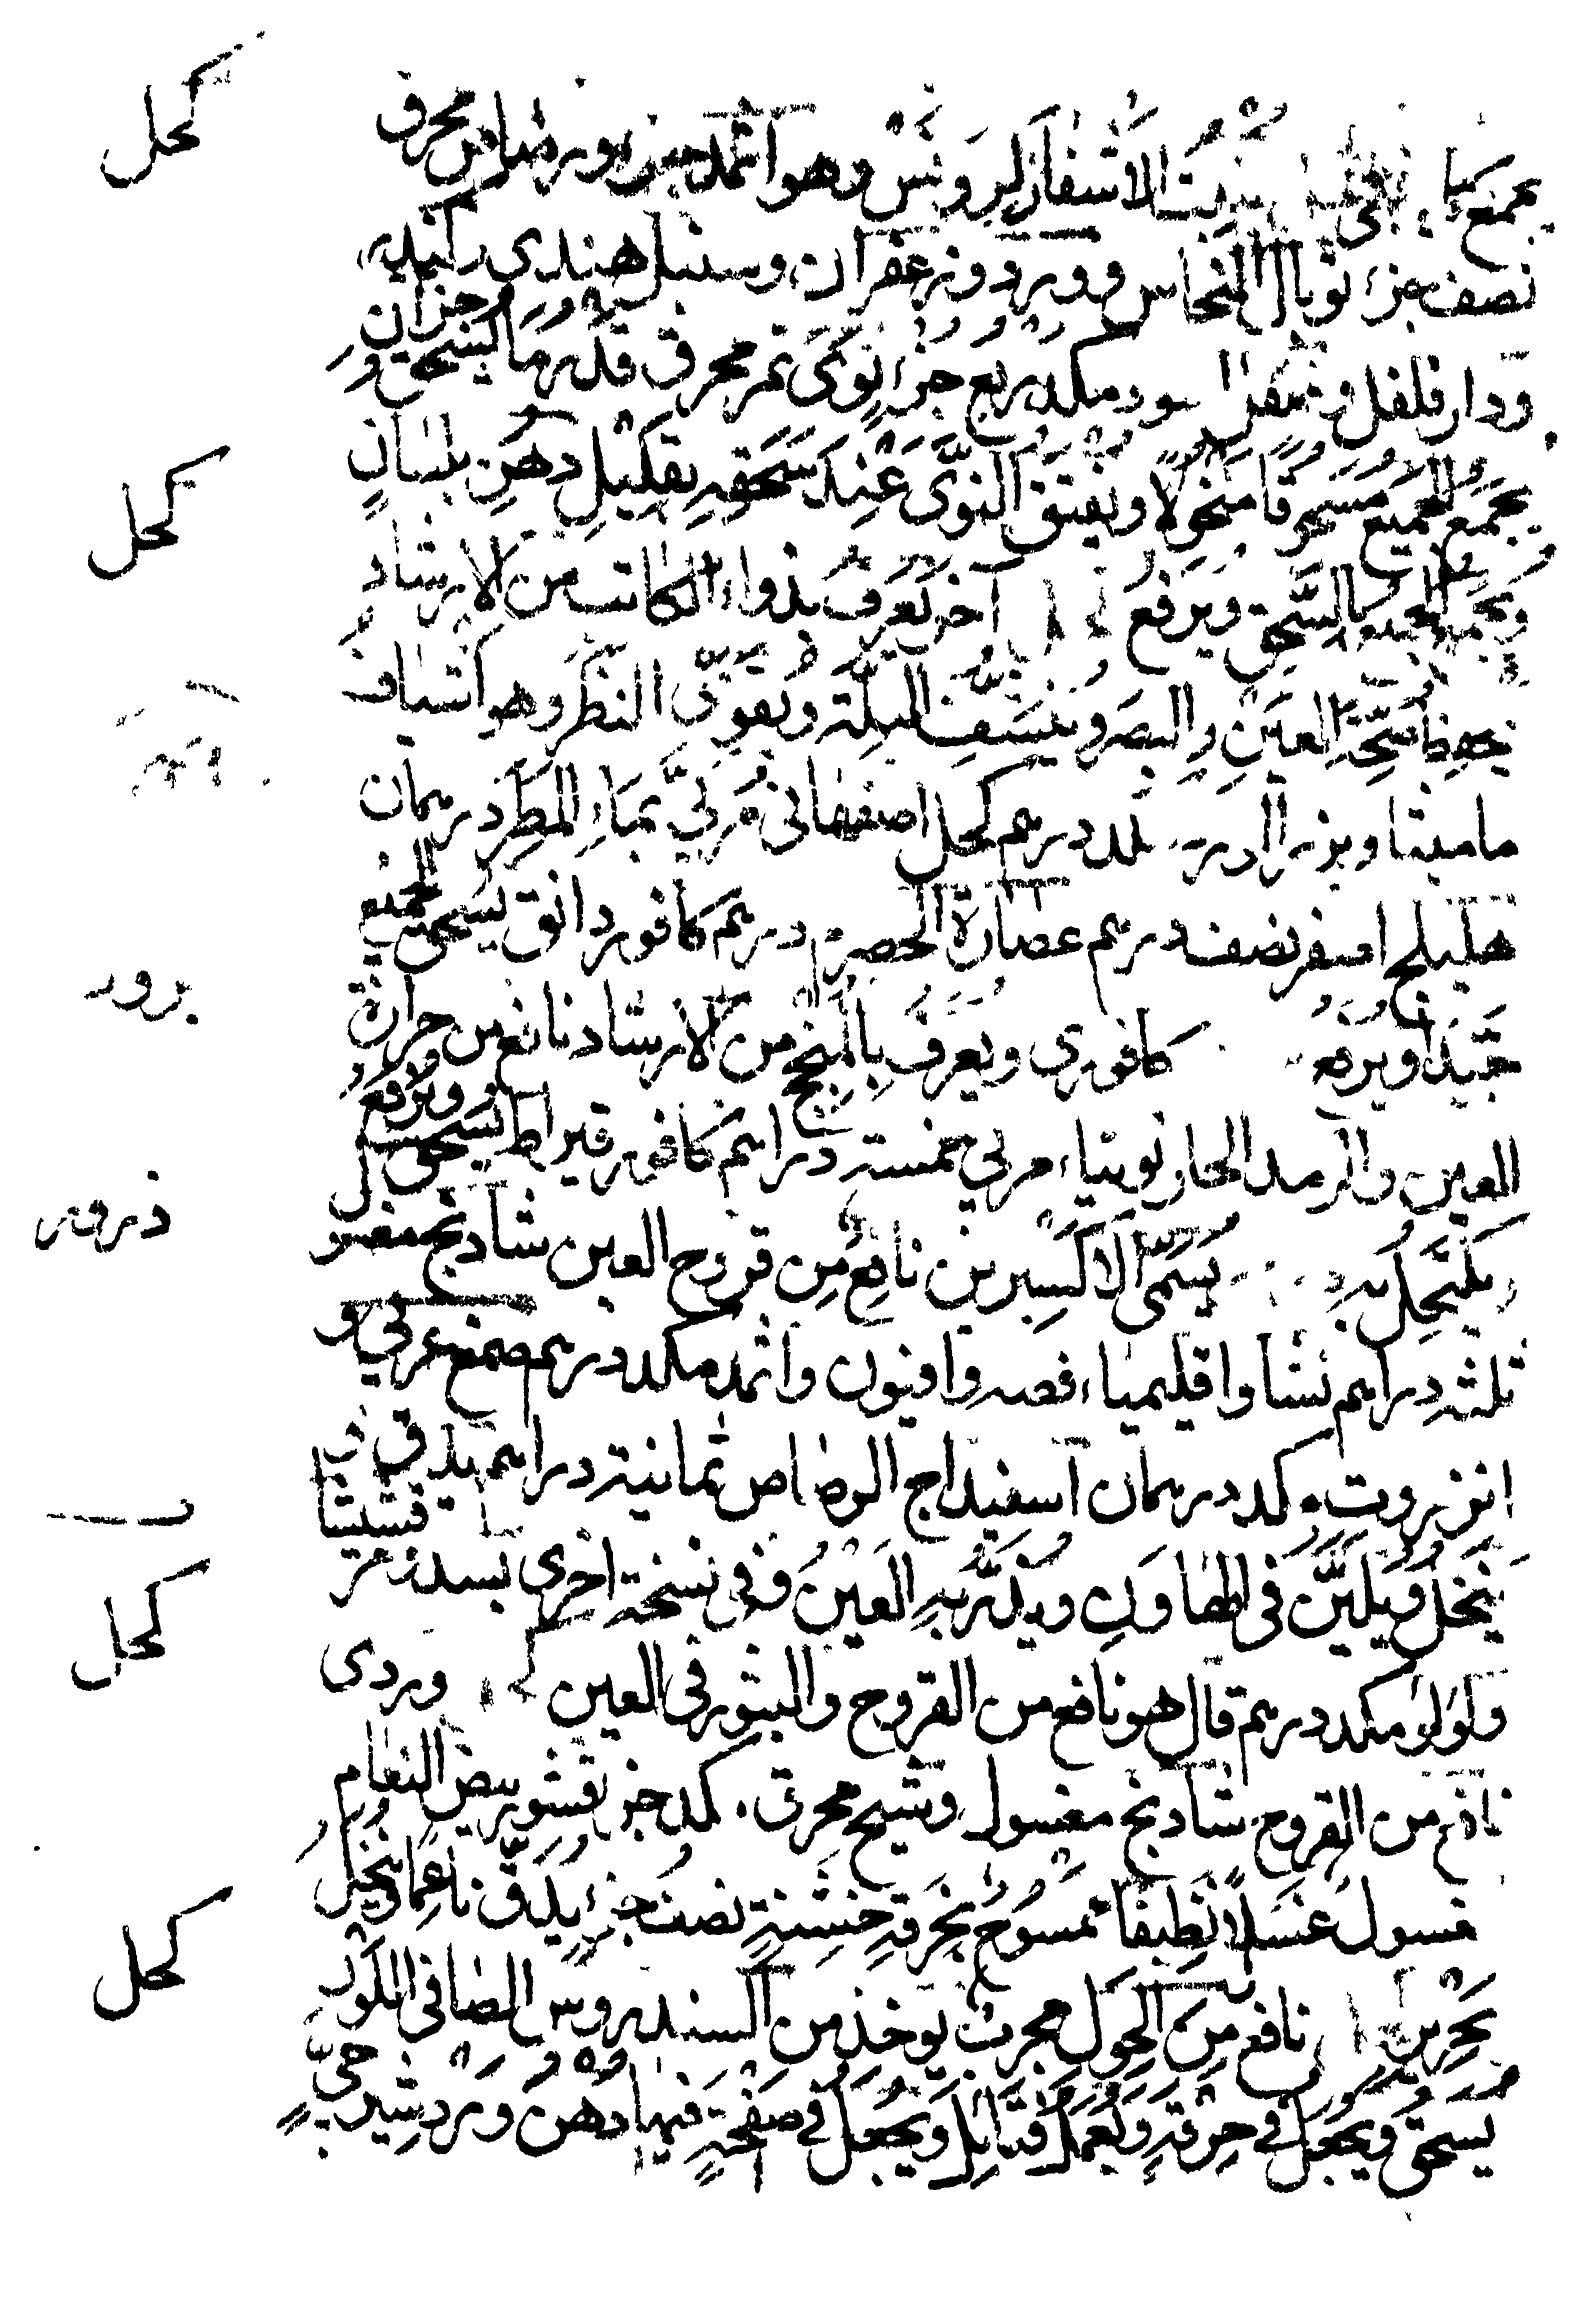 كحل
يجمع ينبت الاشفار لبرونس وهو اثمد جزء ورصاص محرق
نصف جزء توبال النحاس وورد وزعفران وسنبل هندي جزآن
ودار فلفل اسود مكد ربع جزء نوى تمر محرق قدر ما يسحق و
يجمع الجميع مسحوقا منخولا ويفتق النوى عند سحقه بقليل دهن بلسان
كحل
ويجمع بالسحق ويرفع آخر يعرف بدواء الكاتب من الارشاد
يحفظ صحة العين والبصر وينشف البلة ويقوي النظر وهو اشياف
ماميثا وبزر درهم كحل اصفهاني مربي بماء المطر درهمان
هليلج اصفر نصف درهم عصارة الحصرم درهم كافور دانق يسحق الجميع
برود
جيدا ويرفع كافوري ويعرف بالمنجح من الارشاد نافع من حرارة
العين والرمد الحار توتياء مربي خمسة دراهم كافور قيراط يسحق ويرفع
ذرور
يكتحل به يسمى الاكسيرين نافع من قروح العين شادنج مغسول
ثلثة دراهم نشا واقليمياء فضه وافيون واثمد مكد درهم صمغ عربي و
انزروت مكد درهمان اسفيداج الرصاص ثمانية دراهم يدق
ينخل ويلين في الهاون ويذر به العين وفي نسخة اخرى بسد مرقشيشا
كحل
ولولو مكد درهم قال هو نافع من القروح والبثور في العين وردي
نافع من القروح شادنج مغسول وشيح محرق مكد جزء قشور بيض النعام
مغسول غسلا نظيفا ممسوح بخرقة خشنة نصف جزء يدق ناعما وينخل
كحل
بحرير نافع من الحول مجرب يوخذ من السندروس الصافي
يسحق ويجعل في خرقة ويعمل فتائل ويجعل في صفحة فيها دهن ورد شيرجي